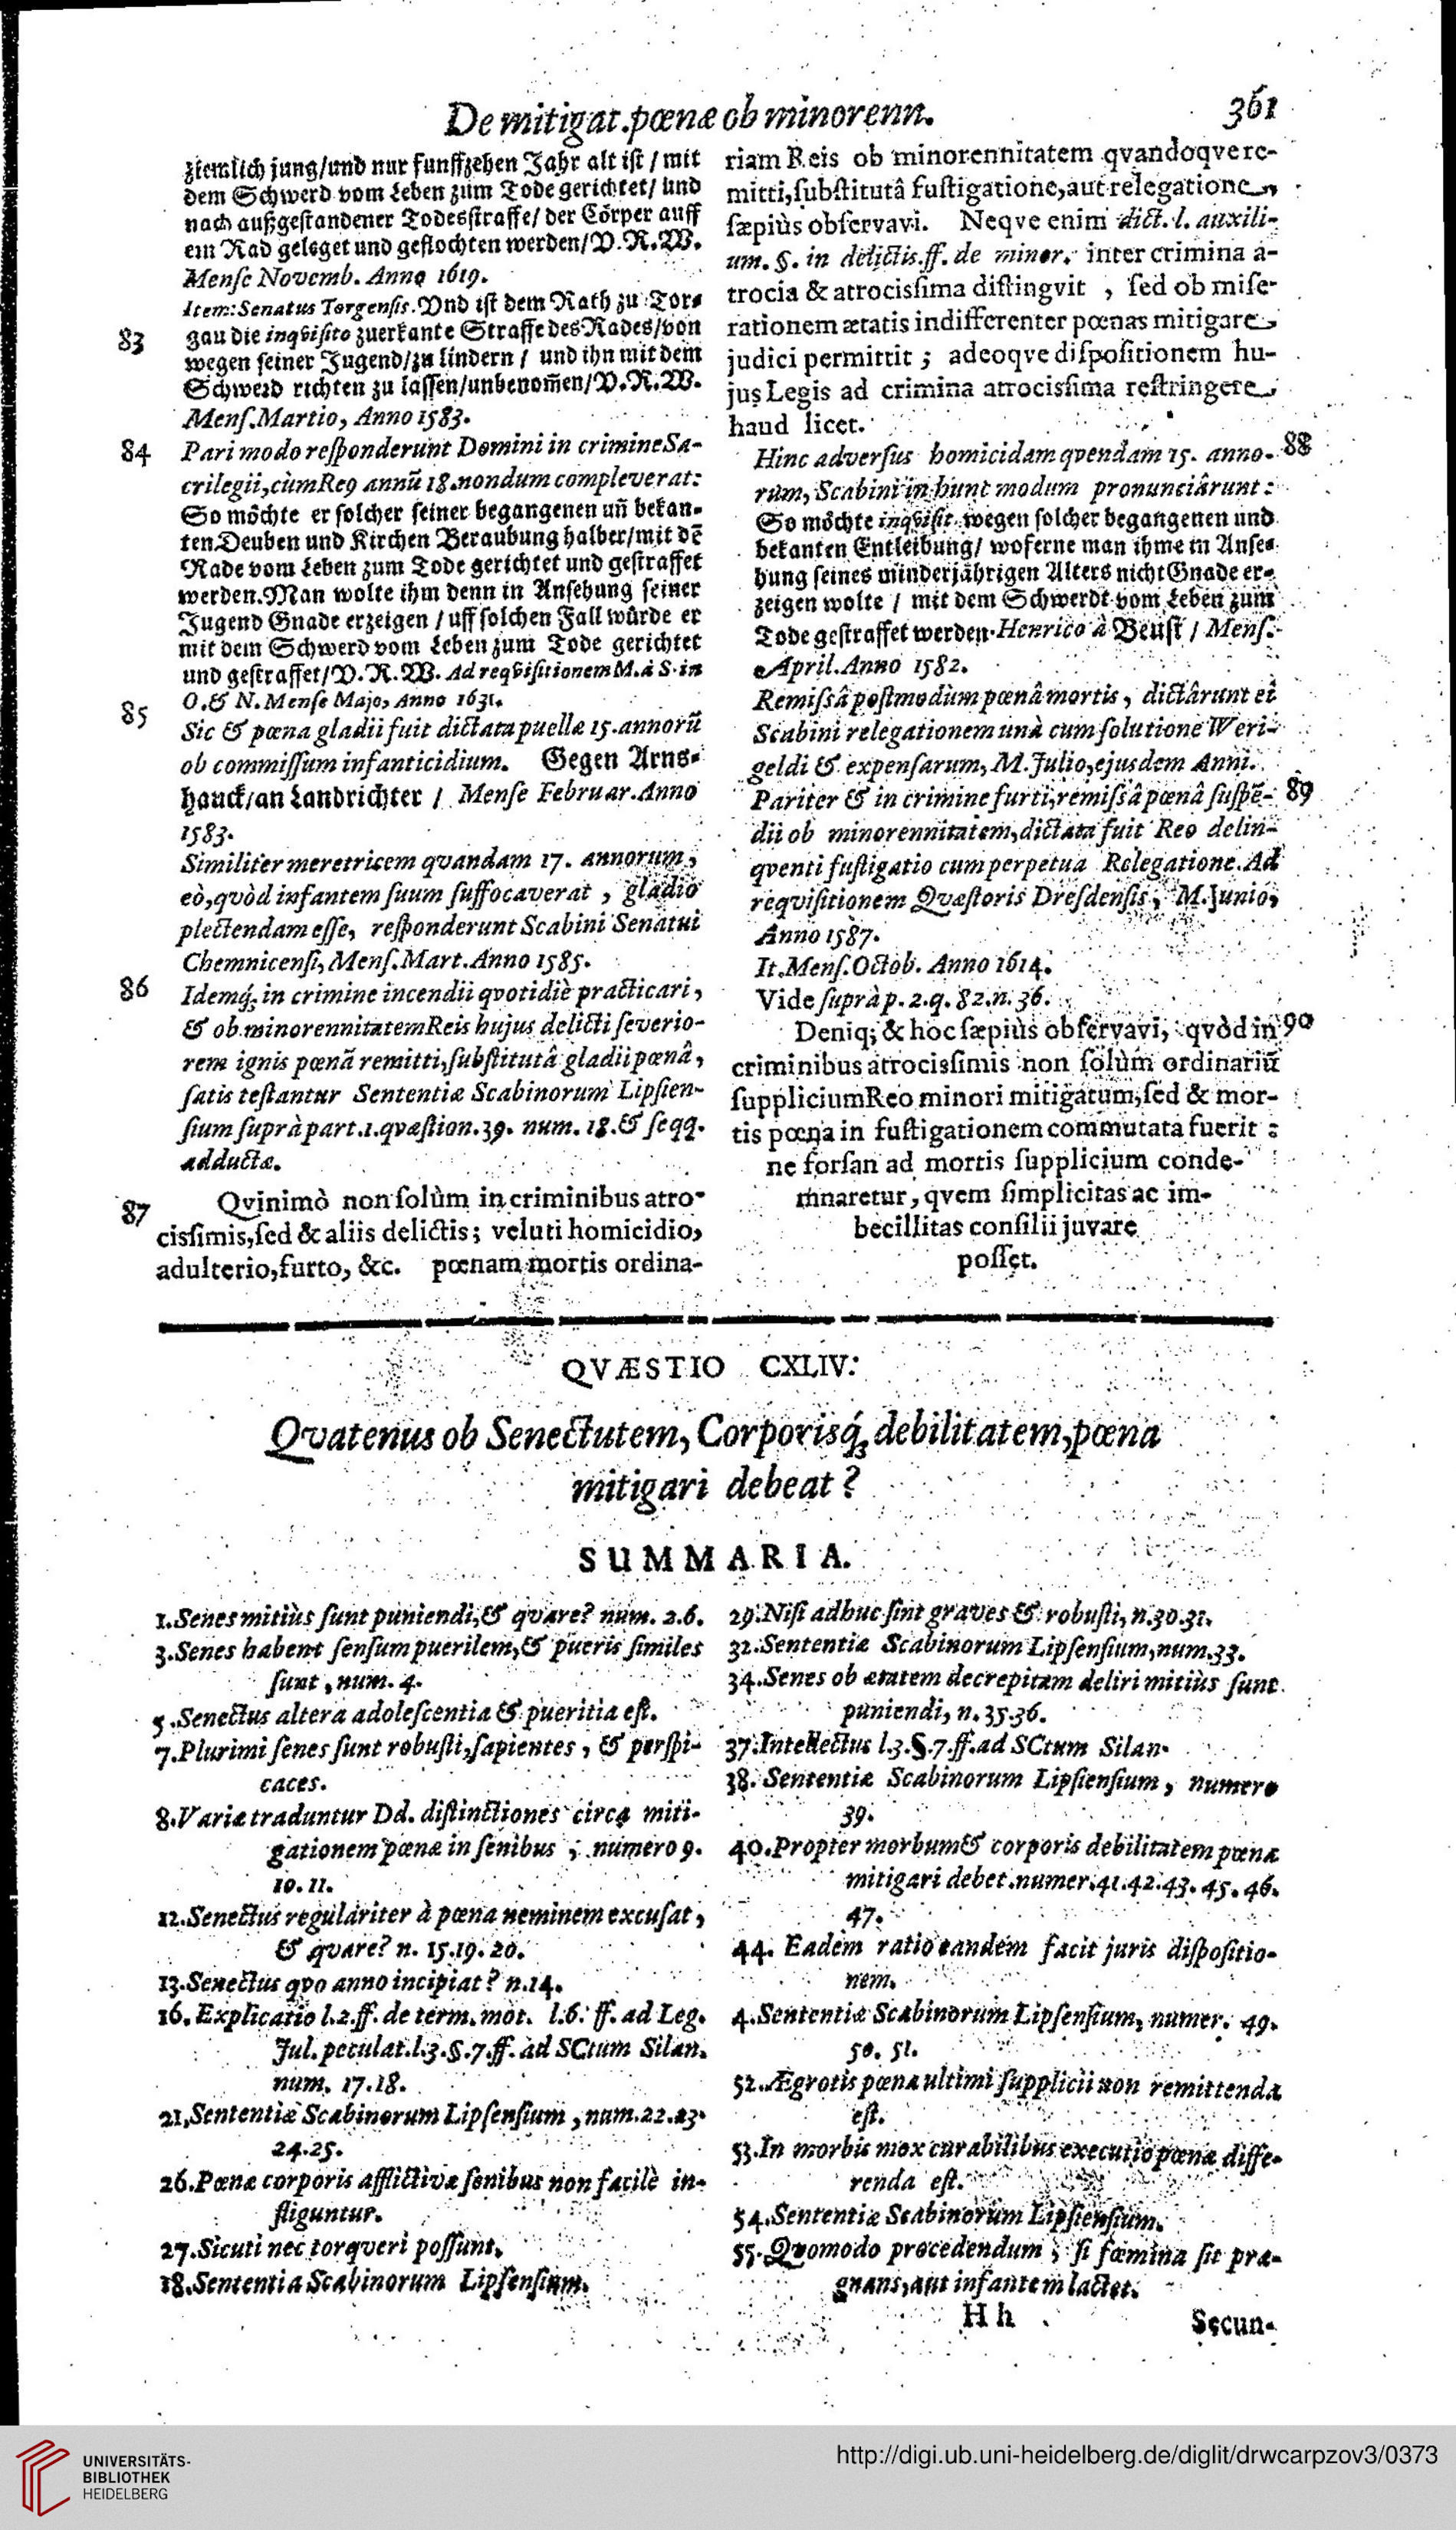 De mitigat. pœnæ ob minorenn.
361
ziemlich jung/und nur funffzehen Jahr alt ist / mit
dem Schwerd vom Leben zum Tode gerichtet/ und
nach außgestandener Todesstraffe/ der Cörper auff
ein Rad geleget und geflochten werden/V.R.W.
Mense Novemb. Anno 1619.
Item: Senatus Torgensis. Vnd ist dem Rath zu Tor-
83
gau die inqvisito zuerkante Straffe des Rades/von
wegen seiner Jugend/zu lindern / und ihn mit dem
Schwerd richten zu lassen/unbenom̃en/V.R.W.
Mens. Martio, Anno 1583.
84
Pari modo responderunt Domini in crimine Sa-
crilegii, cùm Reꝰ annũ 18. nondum compleverat:
So möchte er solcher seiner begangenen uñ bekan-
ten Deuben und Kirchen Beraubung halber/mit dẽ
Rade vom Leben zum Tode gerichtet und gestraffet
werden. Man wolte ihm denn in Ansehung seiner
Jugend Gnade erzeigen / uff solchen Fall würde er
mit dem Schwerd vom Leben zum Tode gerichtet
und gestraffet/V.R.W. Ad reqvisitionem M. à S. in
O. & N. Mense Majo, Anno 1631.
85
Sic & pœna gladii fuit dictata puellæ 15. annorũ
ob commissum infanticidium. Gegen Arns-
hauck/an Landrichter / Mense Februar. Anno
1583.
Similiter meretricem qvandam 17. annorum,
eò, qvòd infantem suum suffocaverat , gladio
plectendam esse, responderunt Scabini Senatui
Chemnicensi, Mens. Mart. Anno 1585.
86
Idemq́; in crimine incendii qvotidiè practicari,
& ob minorennitatem Reis hujus delicti severio-
rem ignis pœnã remitti, substitutâ gladii pœnâ,
satis testantur Sententiæ Scabinorum Lipsien-
sium suprà part. 1. qvæstion. 39. num. 18. & seqq.
adductæ.
87
Qvinimò non solùm in criminibus atro-
cissimis, sed & aliis delictis; veluti homicidio,
adulterio, furto, &c. pœnam mortis ordina-
riam Reis ob minorennitatem qvandoqve re-
mitti, substitutâ fustigatione, aut relegatione,
sæpiùs observavi. Neqve enim dict. l. auxili-
um. §. in delictis. ff. de minor. inter crimina a-
trocia & atrocissima distingvit , sed ob mise-
rationem ætatis indifferenter pœnas mitigare,
judici permittit ; adeoqve dispositionem hu-
jus Legis ad crimina atrocissima restringere,
haud licet.
88
Hinc adversus homicidam qvendam 15. anno-
rum, Scabini in hunc modum pronunciârunt :
So möchte inqvisit. wegen solcher begangenen und
bekanten Entleibung/ woferne man ihme in Anse-
hung seines minderjährigen Alters nicht Gnade er-
zeigen wolte / mit dem Schwerdt vom Leben zum
Tode gestraffet werden. Henrico à Beust / Mens.
April. Anno 1582.
Remissâ postmodùm pœnâ mortis, dictârunt ei
Scabini relegationem unà cum solutione Weri-
geldi & expensarum, M. Julio, ejusdem Anni.
89
Pariter & in crimine furti, remissâ pœnâ suspẽ-
dii ob minorennitatem, dictata fuit Reo delin-
qventi fustigatio cum perpetua Relegatione. Ad
reqvisitionem Qvæstoris Dresdensis, M. Junio,
Anno 1587.
It. Mens. Octob. Anno 1614.
Vide suprà p. 2. q. 82. n. 36.
90
Deniq; & hoc sæpiùs observavi, qvòd in
criminibus atrocissimis non solùm ordinariũ
supplicium Reo minori mitigatum, sed & mor-
tis pœna in fustigationem commutata fuerit :
ne forsan ad mortis supplicium conde-
mnaretur, qvem simplicitas ac im-
becillitas consilii juvare
posset.
QVÆSTIO CXLIV.
Qvatenus ob Senectutem, Corporisq́; debilitatem, pœna
mitigari debeat ?
SUMMARIA.
1. Senes mitiùs sunt puniendi, & qvare? num. 2. 6.
3. Senes habent sensum puerilem, & pueris similes
sunt, num. 4.
5. Senectus altera adolescentia & pueritia est.
7. Plurimi senes sunt robusti, sapientes, & perspi-
caces.
8. Variæ traduntur Dd. distinctiones circa miti-
gationem pœnæ in senibus ; numero 9.
10. 11.
12. Senectus regulariter à pœna neminem excusat,
& qvare? n. 15. 19. 20.
13. Senectus qvo anno incipiat? n. 14.
16. Explicatio l. 2. ff. de term. mot. l. 6. ff. ad Leg.
Jul. peculat. l. 3. §. 7. ff. ad SCtum Silan.
num. 17. 18.
21. Sententiæ Scabinorum Lipsensium, num. 22. 23.
24. 25.
26. Pœnæ corporis afflictivæ senibus non facilè in-
fliguntur.
27. Sicuti nec torqveri possunt.
18. Sententia Scabinorum Lipsensium.
29. Nisi adhuc sint graves & robusti, n. 30. 31.
32. Sententiæ Scabinorum Lipsensium, num. 33.
34. Senes ob ætatem decrepitam deliri mitiùs sunt
puniendi, n. 35. 36.
37. Intellectus l. 3. §. 7. ff. ad SCtum Silan.
38. Sententiæ Scabinorum Lipsiensium, numero
39.
40. Propter morbum & corporis debilitatem pœna
mitigari debet. numer. 41. 42. 43. 45. 46.
47.
44. Eadem ratio eandem facit juris dispositio-
nem.
4. Sententiæ Scabinorum Lipsensium, numer. 49.
50. 51.
52. Ægrotis pœna ultimi supplicii non remittenda
est.
53. In morbis mox curabilibus executio pœnæ diffe-
renda est.
54. Sententiæ Scabinorum Lipsiensium.
55. Qvomodo procedendum, si fœmina sit præ-
gnans, aut infantem lactet.
H h
Secun-
UNIVERSITÄTS-
BIBLIOTHEK
HEIDELBERG
http://digi.ub.uni-heidelberg.de/diglit/drwcarpzov3/0373